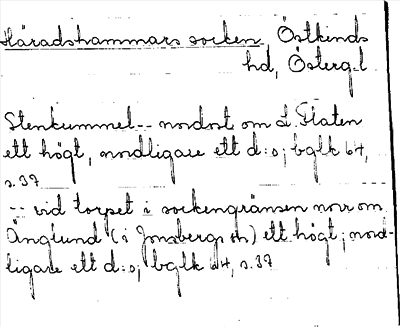 Häradshammars socken Östkinds
hd, Östergl
Stenkummel -- nordost om L. Flaten
ett högt, nordligare ett d:o; bglk 64,
s.37
-- vid torpet i sockengränsen norr om
Änglund (i Jonsbergs sn) ett högt; nord-
ligare ett d:o; bglk 64, s.37